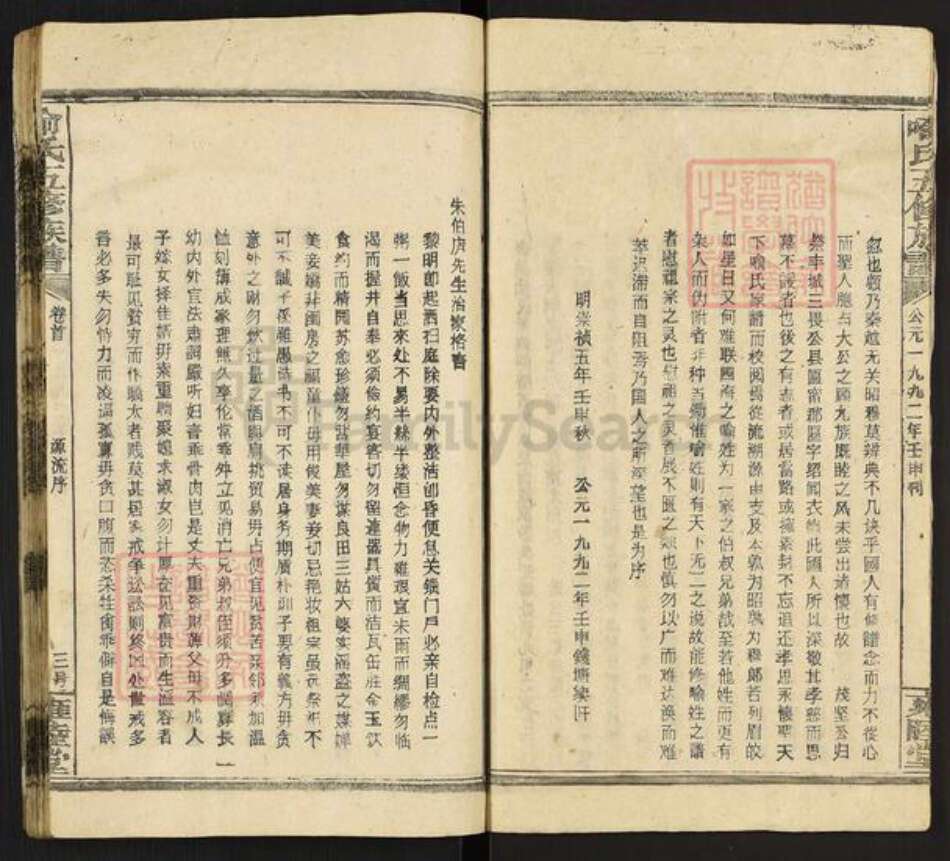 喻氏五修族譜
公元一九九二年壬申刊
忽也顧乃秦越无关昭穆莫辨典不几缺乎國人有仰體念而力不從心
而聖人胞与大公之顾九族既睦之风未尝出诸懷也故 茂坚公归
祭丰城三畏公县匾甯那匾字绍闻衣 此國人所以深敬其孝慈而思
慕不諼者也後之有志者或居當路或擁素封不忘追还孝思永懷聖天
下喻氏家譜而校阅焉從流溯源由支及本孰为昭孰为穆郎若列眉皎
如星日又何难联四海之喻姓为一家之伯叔兄弟哉至若他姓而更有
杂人而伪附者非种当锄惟喻姓则有天下无二之说故能修喻姓之譜
者慰祖宗之灵也慰祖之灵者展不匱之 也慎勿以广而难达涣而难
萃迟滞而自阻焉乃国人之所深望也是为序
明崇祯五年壬申秋 公元一九九二年壬申錢塘梁
朱伯庐先生治家格言
黎明即起洒扫庭除要内外整洁即昏便息关锁门戶必亲自检点一
粥一飯当思来处不易半絲半缕恒念物力維艰宜未雨而綢繆勿临
渴而掘井自奉必须儉約宴客切勿留連器具質而洁瓦缶胜金玉飮
食約而精园蔬愈珍饈勿营華屋勿谋良田三姑六婆实淫盗之媒婢
美妾嬌非闺房之福童仆毋用俊美妻妾切忌艳妝祖宗虽远祭祀不
可不誠子孫雖愚诗书不可不读居身务期质朴訓子要有義方毋貪
意外之财勿饮过量之酒與肩挑贸易毋占便宜见贫苦亲邻须加温
恤刻薄成家理無久享伦常乖舛立见消亡兄弟叔侄须分多润寡長
幼内外宜法肃詞严听妇言乖骨肉岂是丈夫重资财薄父母不成人
子嫁女择佳婿毋索重聘娶媳求淑女勿计厚奁见富贵而生谄容者
最可耻见貧穷而作驕太者贱莫甚居家戒争讼訟则終凶处世戒多
言言必多失勿恃力而凌逼孤寡毋贪口腹而恣杀牲禽乖僻自是悔誤
喻氏五修族譜
卷首
源流序
三号